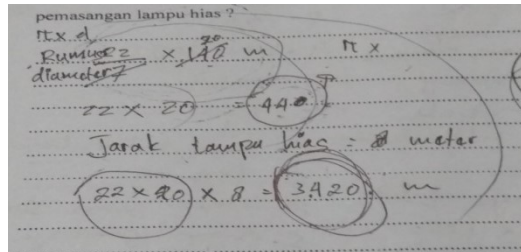 pemasangan lampu hias ?
π x d
Rumus 22/7 × 140 20 m π x
diameter
22 × 20 = 440
Jarak lampu hias = 8 meter
22 × 20 × 8 = 3420 m